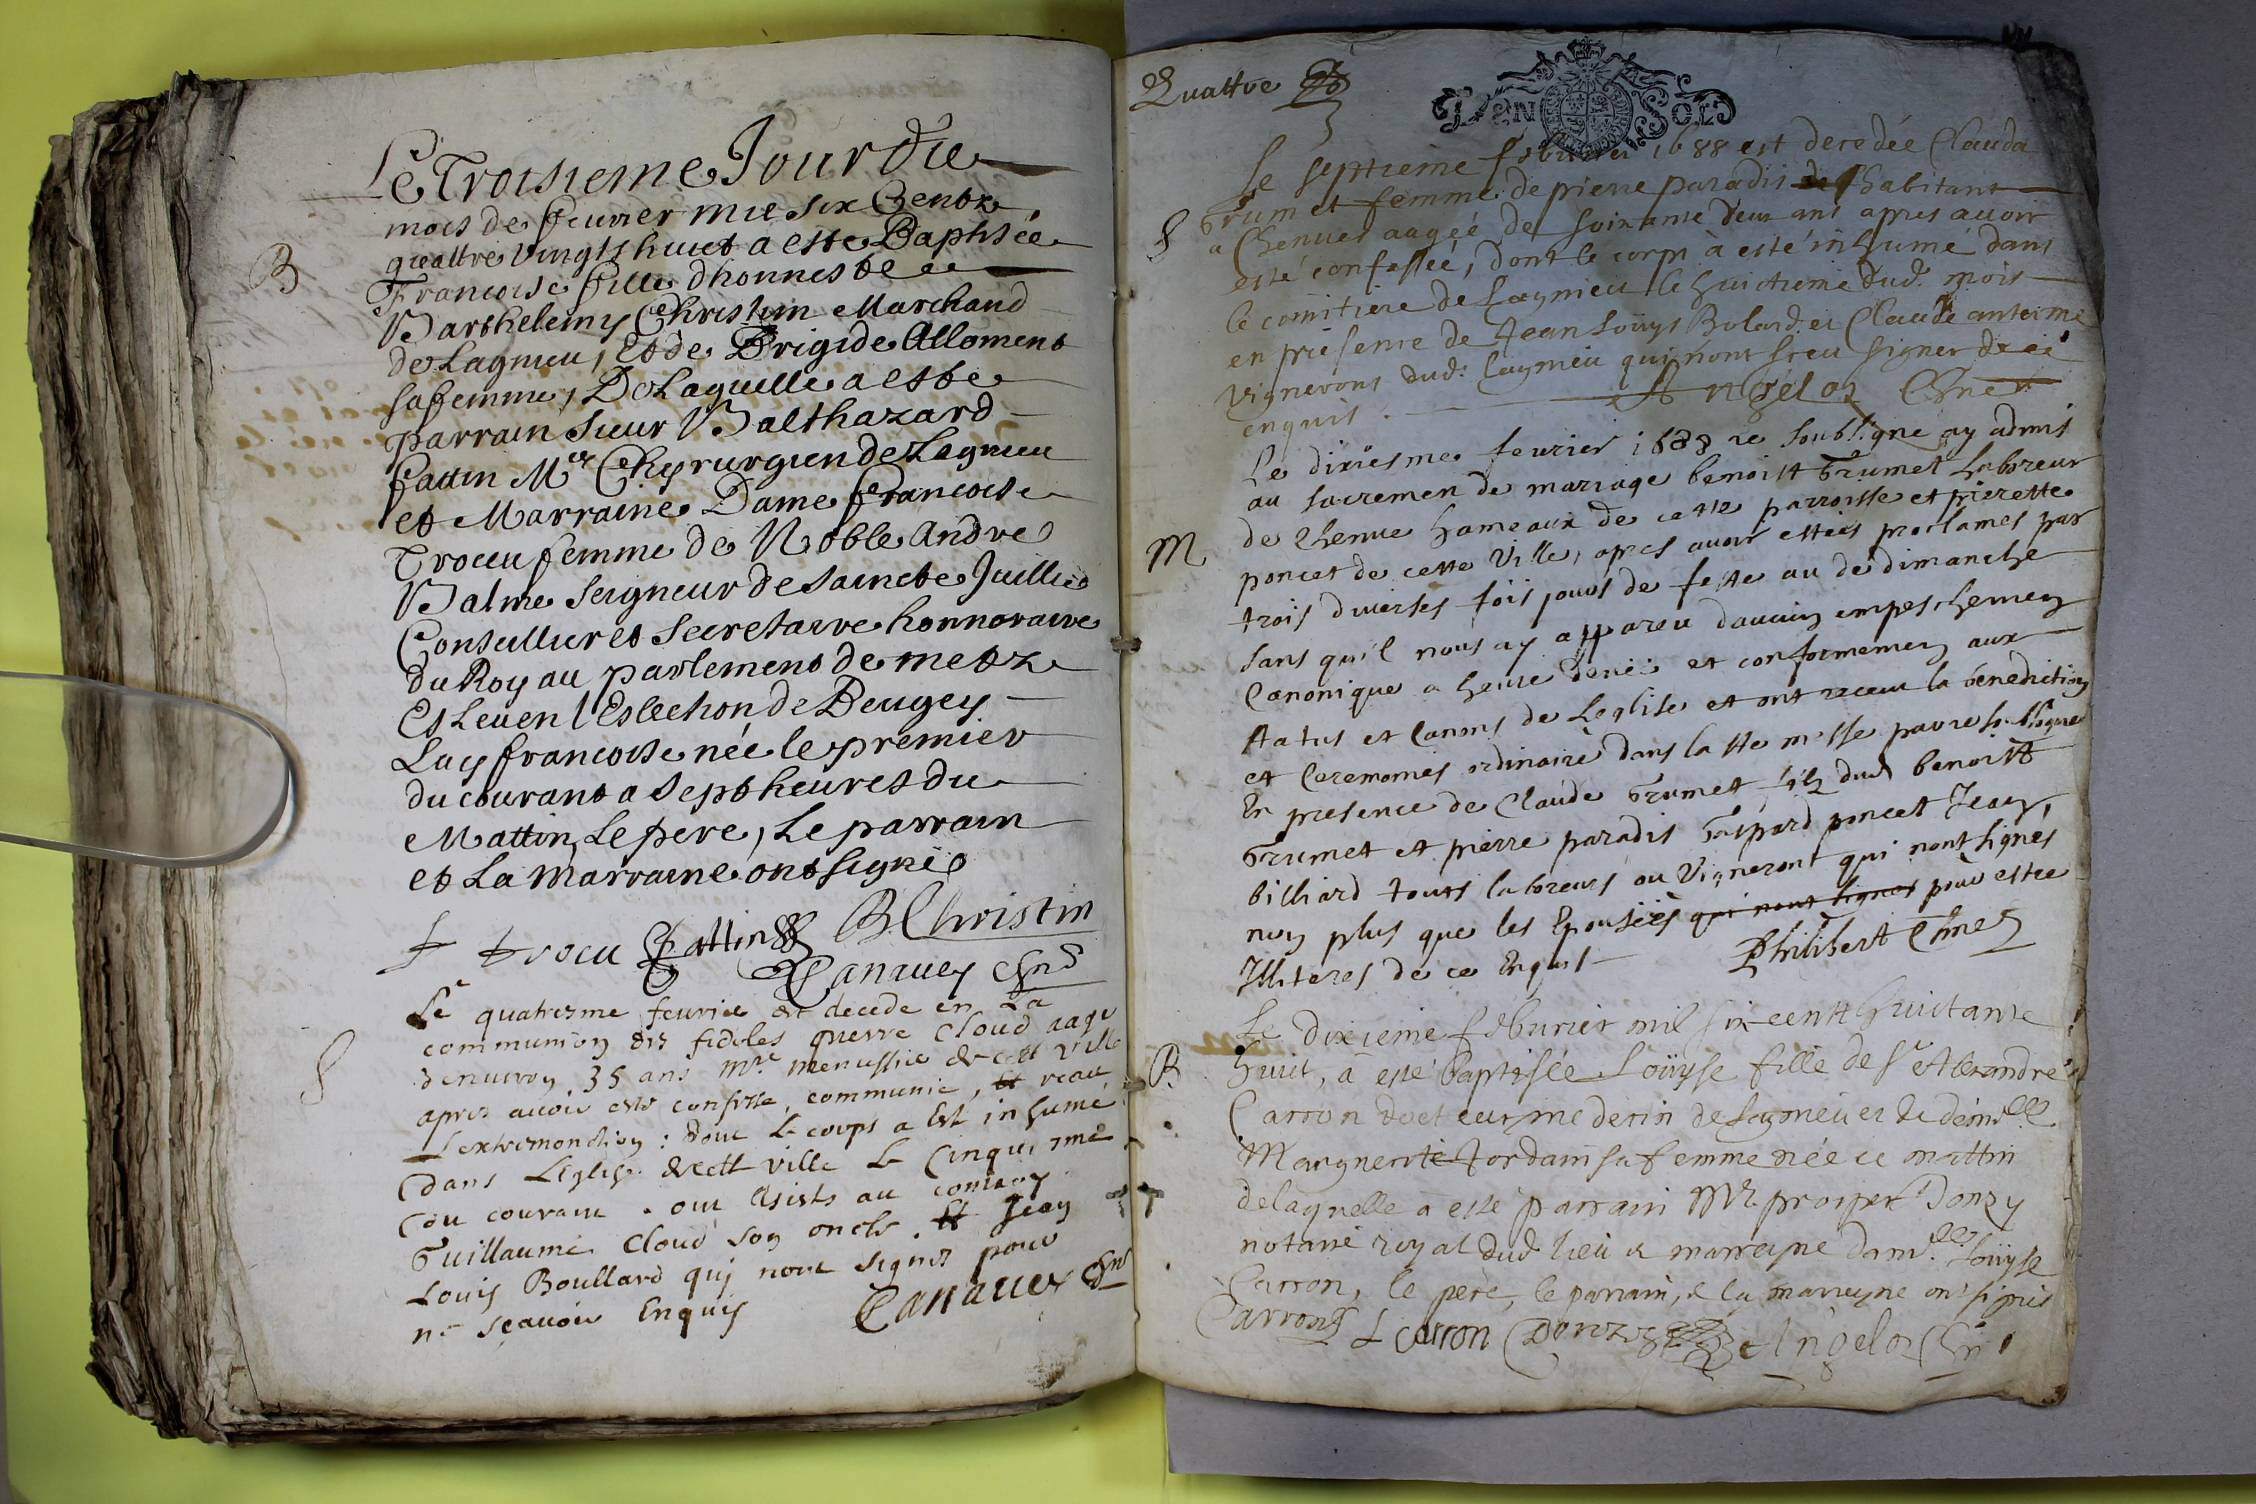 B
Le Troisieme Jour du
mois de feuvrier mil six Centz
quattre vingts huict a esté Baptisée
Francoise fille d'honneste
Barthelemy Christin Marchand
de Lagnieu, Et de Brigide Alloment
sa femme, De Laquelle a esté
parrain sieur Balthazard
fattin Mre Chyrurgien de Lagnieu
et Marraine Dame Francoise
Trocu femme de Noble André
Balme seigneur de saincte Juillie
Conseillier et Secretaire honnoraire
du Roy au parlement de metz
Esleu en l'Eslection de Beugey
Lacy francoise née le premier
du courant a sept heures du
Mattin, Le pere, Le parrain
et La marraine ont signé
f trocu fattin BChristin
Canauex
S
Le quatriesme feurier est decede en La
communion des fideles pierre Cloud aage
denuiron 35 ans mre menussie de cett ville
apres auoir esté confesse, communie, et receu
L'extremonction : dont Le corps a Est inhumé
dans L'Eglise de cett ville Le Cinquiesme
du courant . ont assisté au conuoy
Guillaume Cloud son oncle. Et Jean
Louis Boullard qui nont signez pour
ne scauoir Enquis Canauex
Quattre
DEN SOL
S
Le septieme febvrier 1688 est decedée Clauda
Grumet femme de pierre paradis de habitant
a Chenues aagée de soixante deux ans apres auoir
esté confessée, dont le corps à esté inhumé dans
le comitiere de Lagnieu le huictieme dud. mois
en presence de Jean Loüys Bolard et Claude antoine
vignerons dud: lagnieu qui n'ont sceu signer de ce
enquis. Angelot
M
Le dixiesme feurier 1688 ie soubsigne ay admis
au sacremen de mariage benoist Grumet laboreur
de Chenue hameaux de cette parroisse et pierette
poncet de cette ville, apres auoir estées proclames par
trois diuerses fois jours de feste ou de dimanche
sans qu'il nous ay appareu d'aucun empeschemen
Canonique a heure deue et conformemen aux
status et Canons de Leglise et ont receu la benediction
et Ceremonies ordinaire dans la ste messe par
En presence de Claude Grumet filz dud benoist
Grumet et pierre paradis Gaspard poncet Jean
billiard touts laboreurs ou vigneront qui nont signés
non plus que les Epousées qui nont signes pour estre
Illiteres de ce Enquis Philibert
B
Le dixieme febvrier mil six centz huictante
huict, à esté baptisée Loüyse fille de Sr Alexandre
Carron docteur medecin de Lagnieu et de demlle
Marguerite Jordain sa femme née ce mattin
de laquelle a esté parrain Mr. prosper Donzy
notaire royal dud lieu & marreyne damlle Loüyse
Carron, le père, le parrain, & la marreyne ont signés
Carron L Carron Donzy Angelot